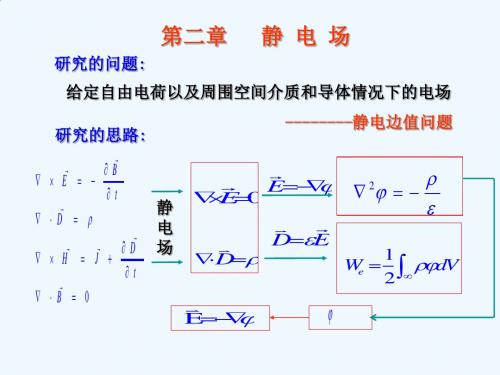 第二章 静 电 场
研究的问题:
给定自由电荷以及周围空间介质和导体情况下的电场
--------静电边值问题
研究的思路:
∇ × E⃗ = − ∂B⃗/∂t
∇ · D⃗ = ρ
∇ × H⃗ = J⃗ + ∂D⃗/∂t
∇ · B⃗ = 0
静电场
∇×E⃗=0
∇·D⃗=ρ
E⃗=−∇φ
D⃗=εE⃗
∇²φ = − ρ/ε
Wₑ = 1/2 ∫∞ ρφdV
φ
E⃗=−∇φ